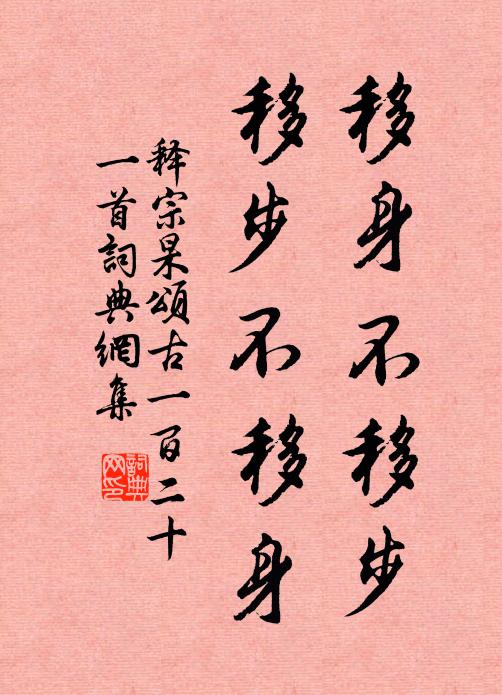 移身不移步
移步不移身
释宗杲頌古一百二十
一首詞典網集
詞典网印